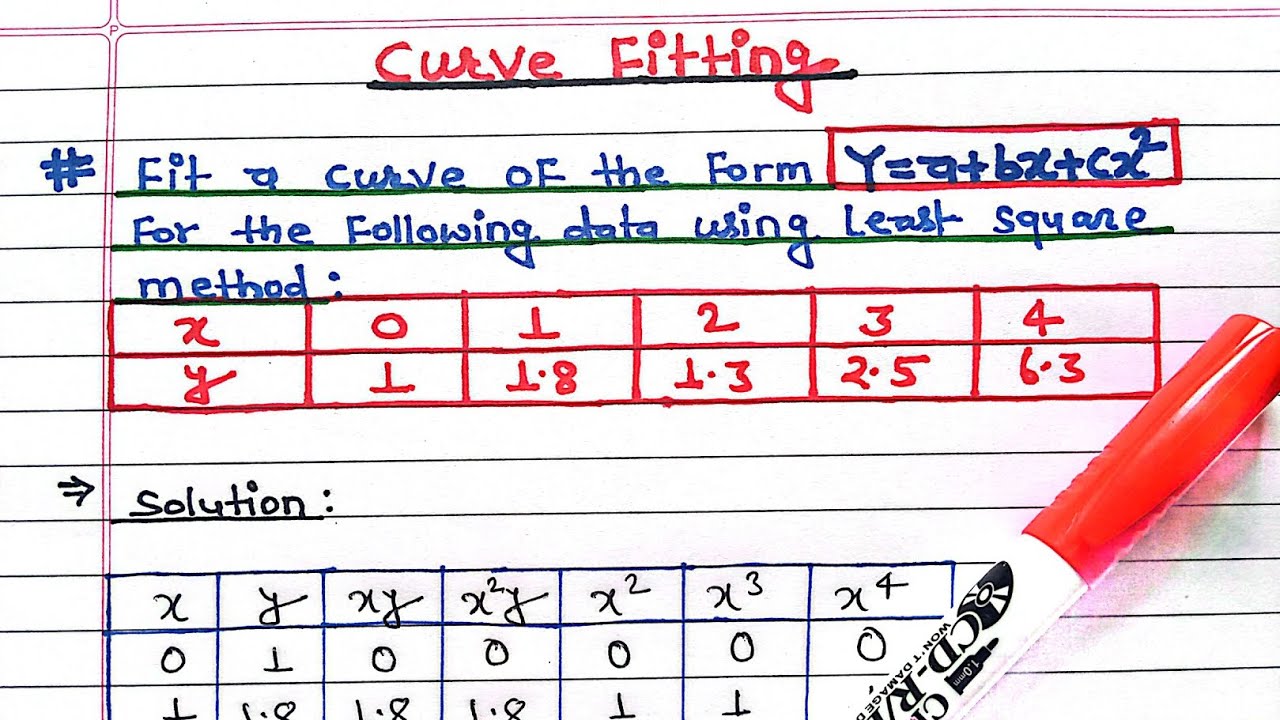 Curve Fitting
# Fit a curve of the form Y=a+bx+cx²
For the following data using Least square
method:
x 0 1 2 3 4
y 1 1.8 1.3 2.5 6.3
⇒ Solution:
x y xy x²y x² x³ x⁴
0 1 0 0 0 0 0
1 1.8 1.8 1.8 1 1
CD-R/
WON'T DAMAGE
1.0mm